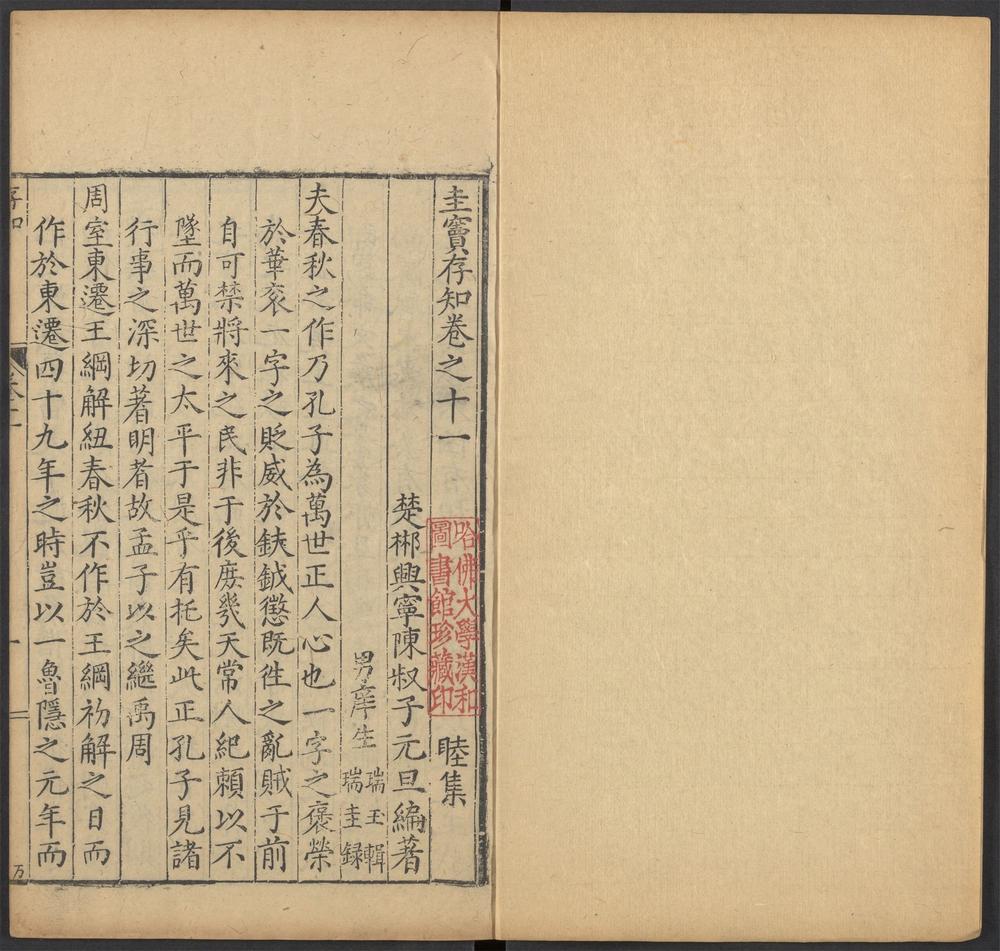 圭竇存知卷之十一
睦集
哈佛大學漢和
圖書館珍藏印
楚郴興寧陳叔子元旦編著
男庠生 瑞玉輯
瑞圭録
夫春秋之作乃孔子為萬世正人心也一字之褒榮
於華衮一字之貶威於鈇鉞懲既徃之亂賊于前
自可禁將來之民非于後庻㡬天常人紀賴以不
墜而萬世之太平于是乎有托矣此正孔子見諸
行事之深切著明者故孟子以之繼禹周
周室東遷王綱解紐春秋不作於王綱初解之日而
作於東遷四十九年之時豈以一魯隱之元年而